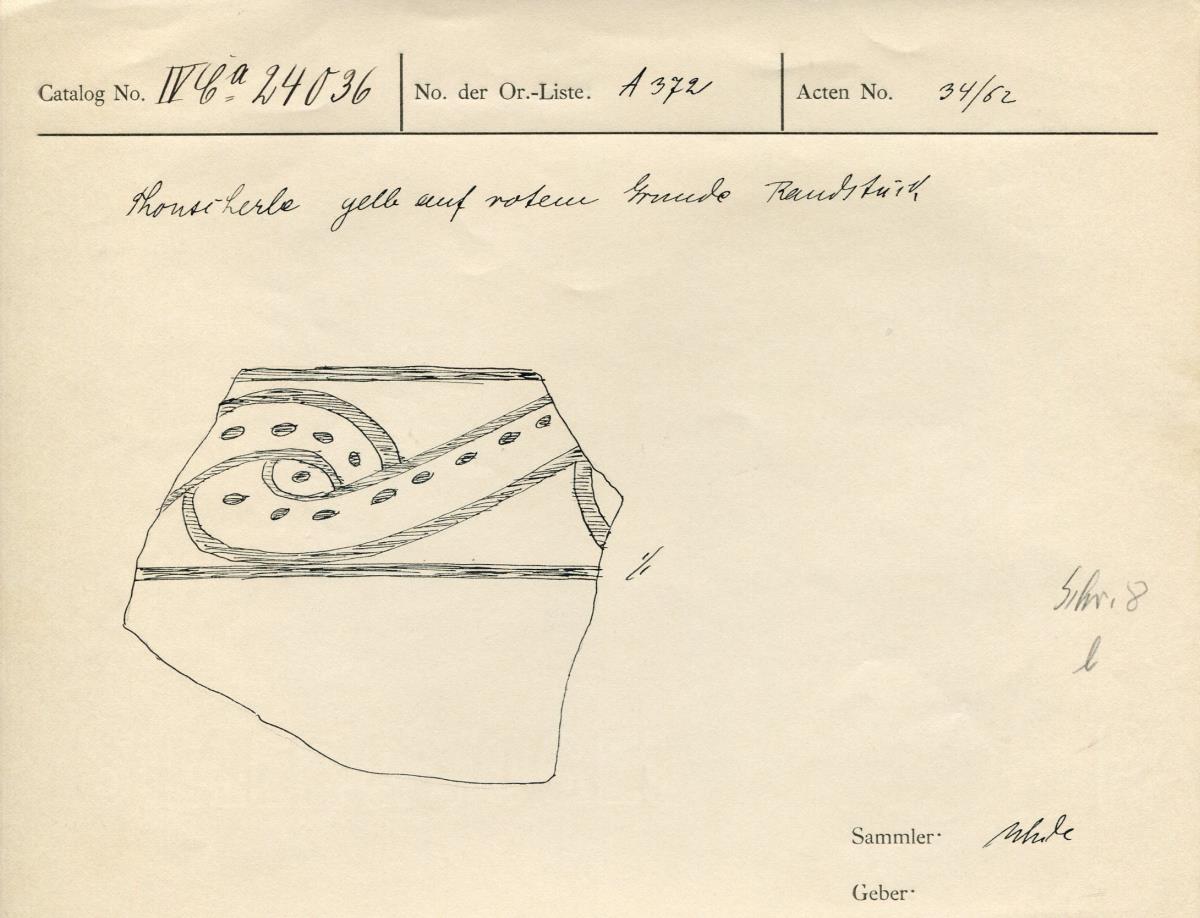 Catalog No. IV Ca 24036 No. der Or.-Liste. A 372 Acten No. 34/62
Thonscherbe gelb auf rotem Grunde Randstück
1/1
Schr. 8
b
Sammler. Uhde
Geber.